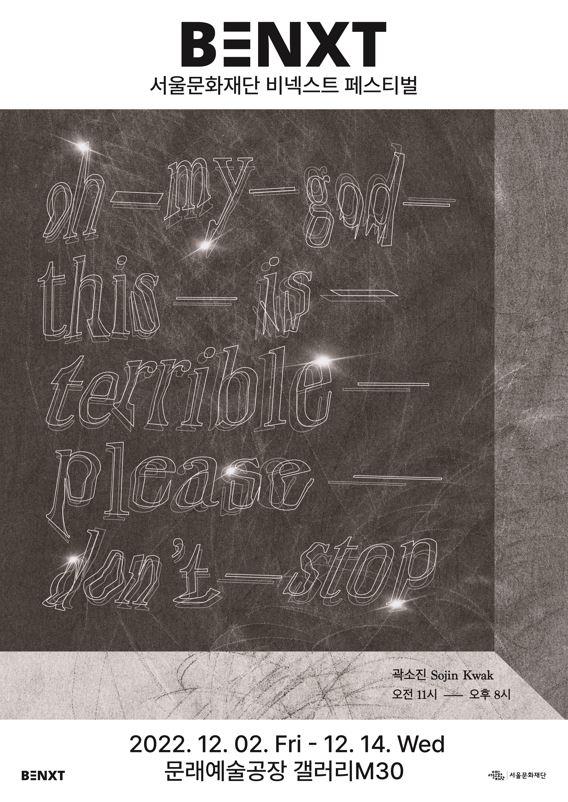 BENXT
서울문화재단 비넥스트 페스티벌
oh—my—god—
this — is —
terrible —
please —
don't — stop
곽소진 Sojin Kwak
오전 11시 — 오후 8시
2022. 12. 02. Fri - 12. 14. Wed
문래예술공장 갤러리M30
BENXT
서울문화재단